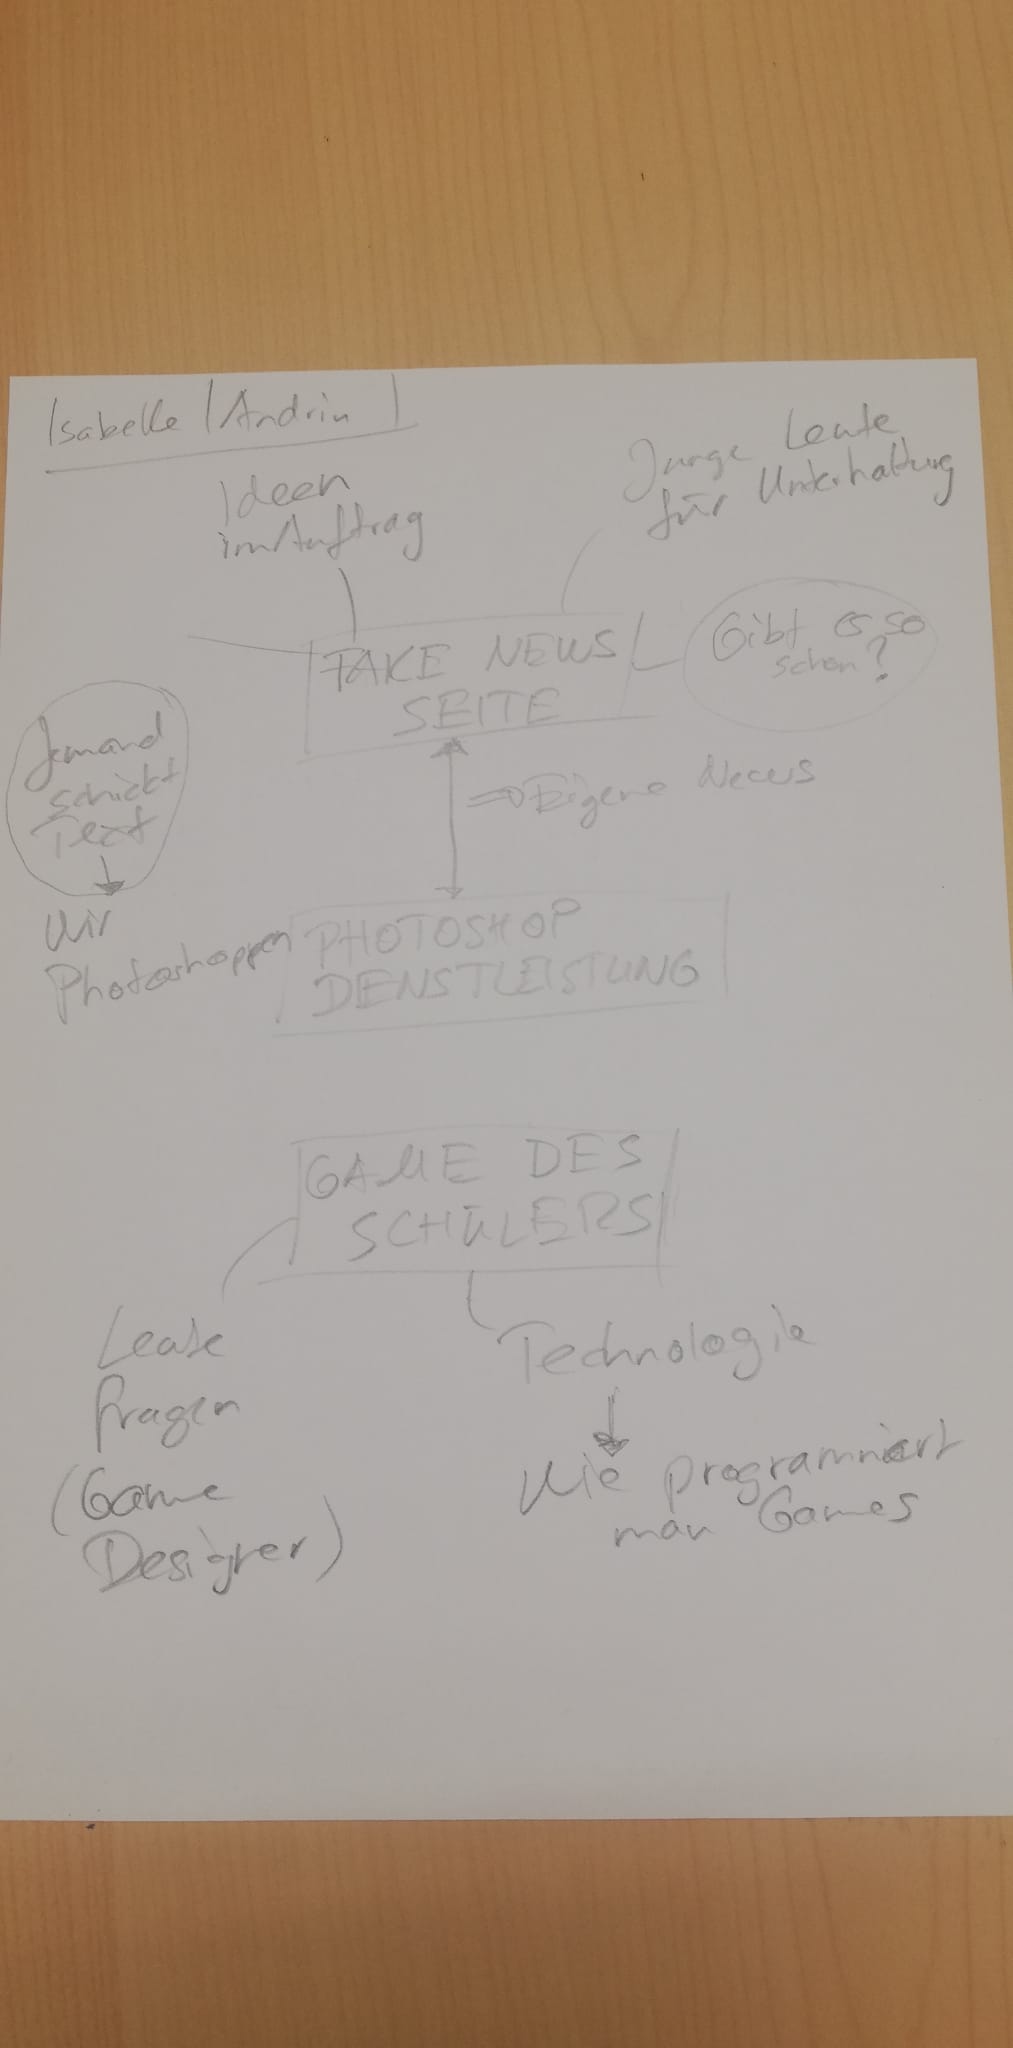 Isabelle | Andrin
Ideen
im Auftrag
Junge Leute
für Unterhaltung
FAKE NEWS
SEITE
Gibt es so
schon?
Jemand
schickt
Text
Wir
Photoshoppen
Eigene News
PHOTOSHOP
DIENSTLEISTUNG
GAME DES
SCHÜLERS
Leute
fragen
(Game
Designer)
Technologie
Wie programmiert
man Games